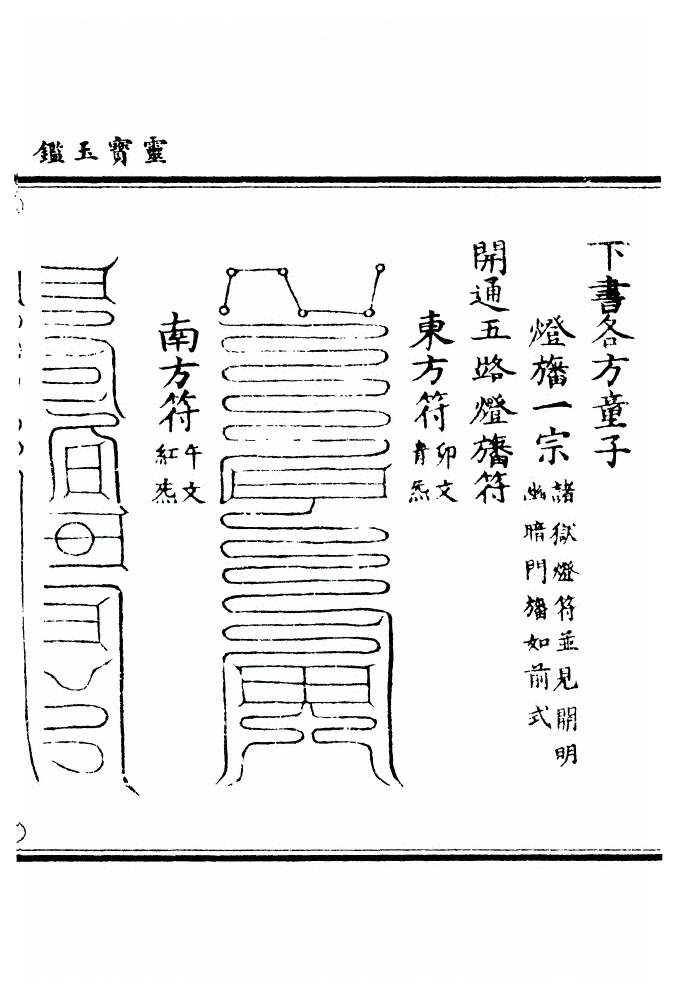 靈寳玉鑑
下書各方童子
燈旛一宗
諸獄燈符並見開明
幽暗門旛如前式
開通五路燈旛符
東方符
卯文
青炁
南方符
午文
紅炁